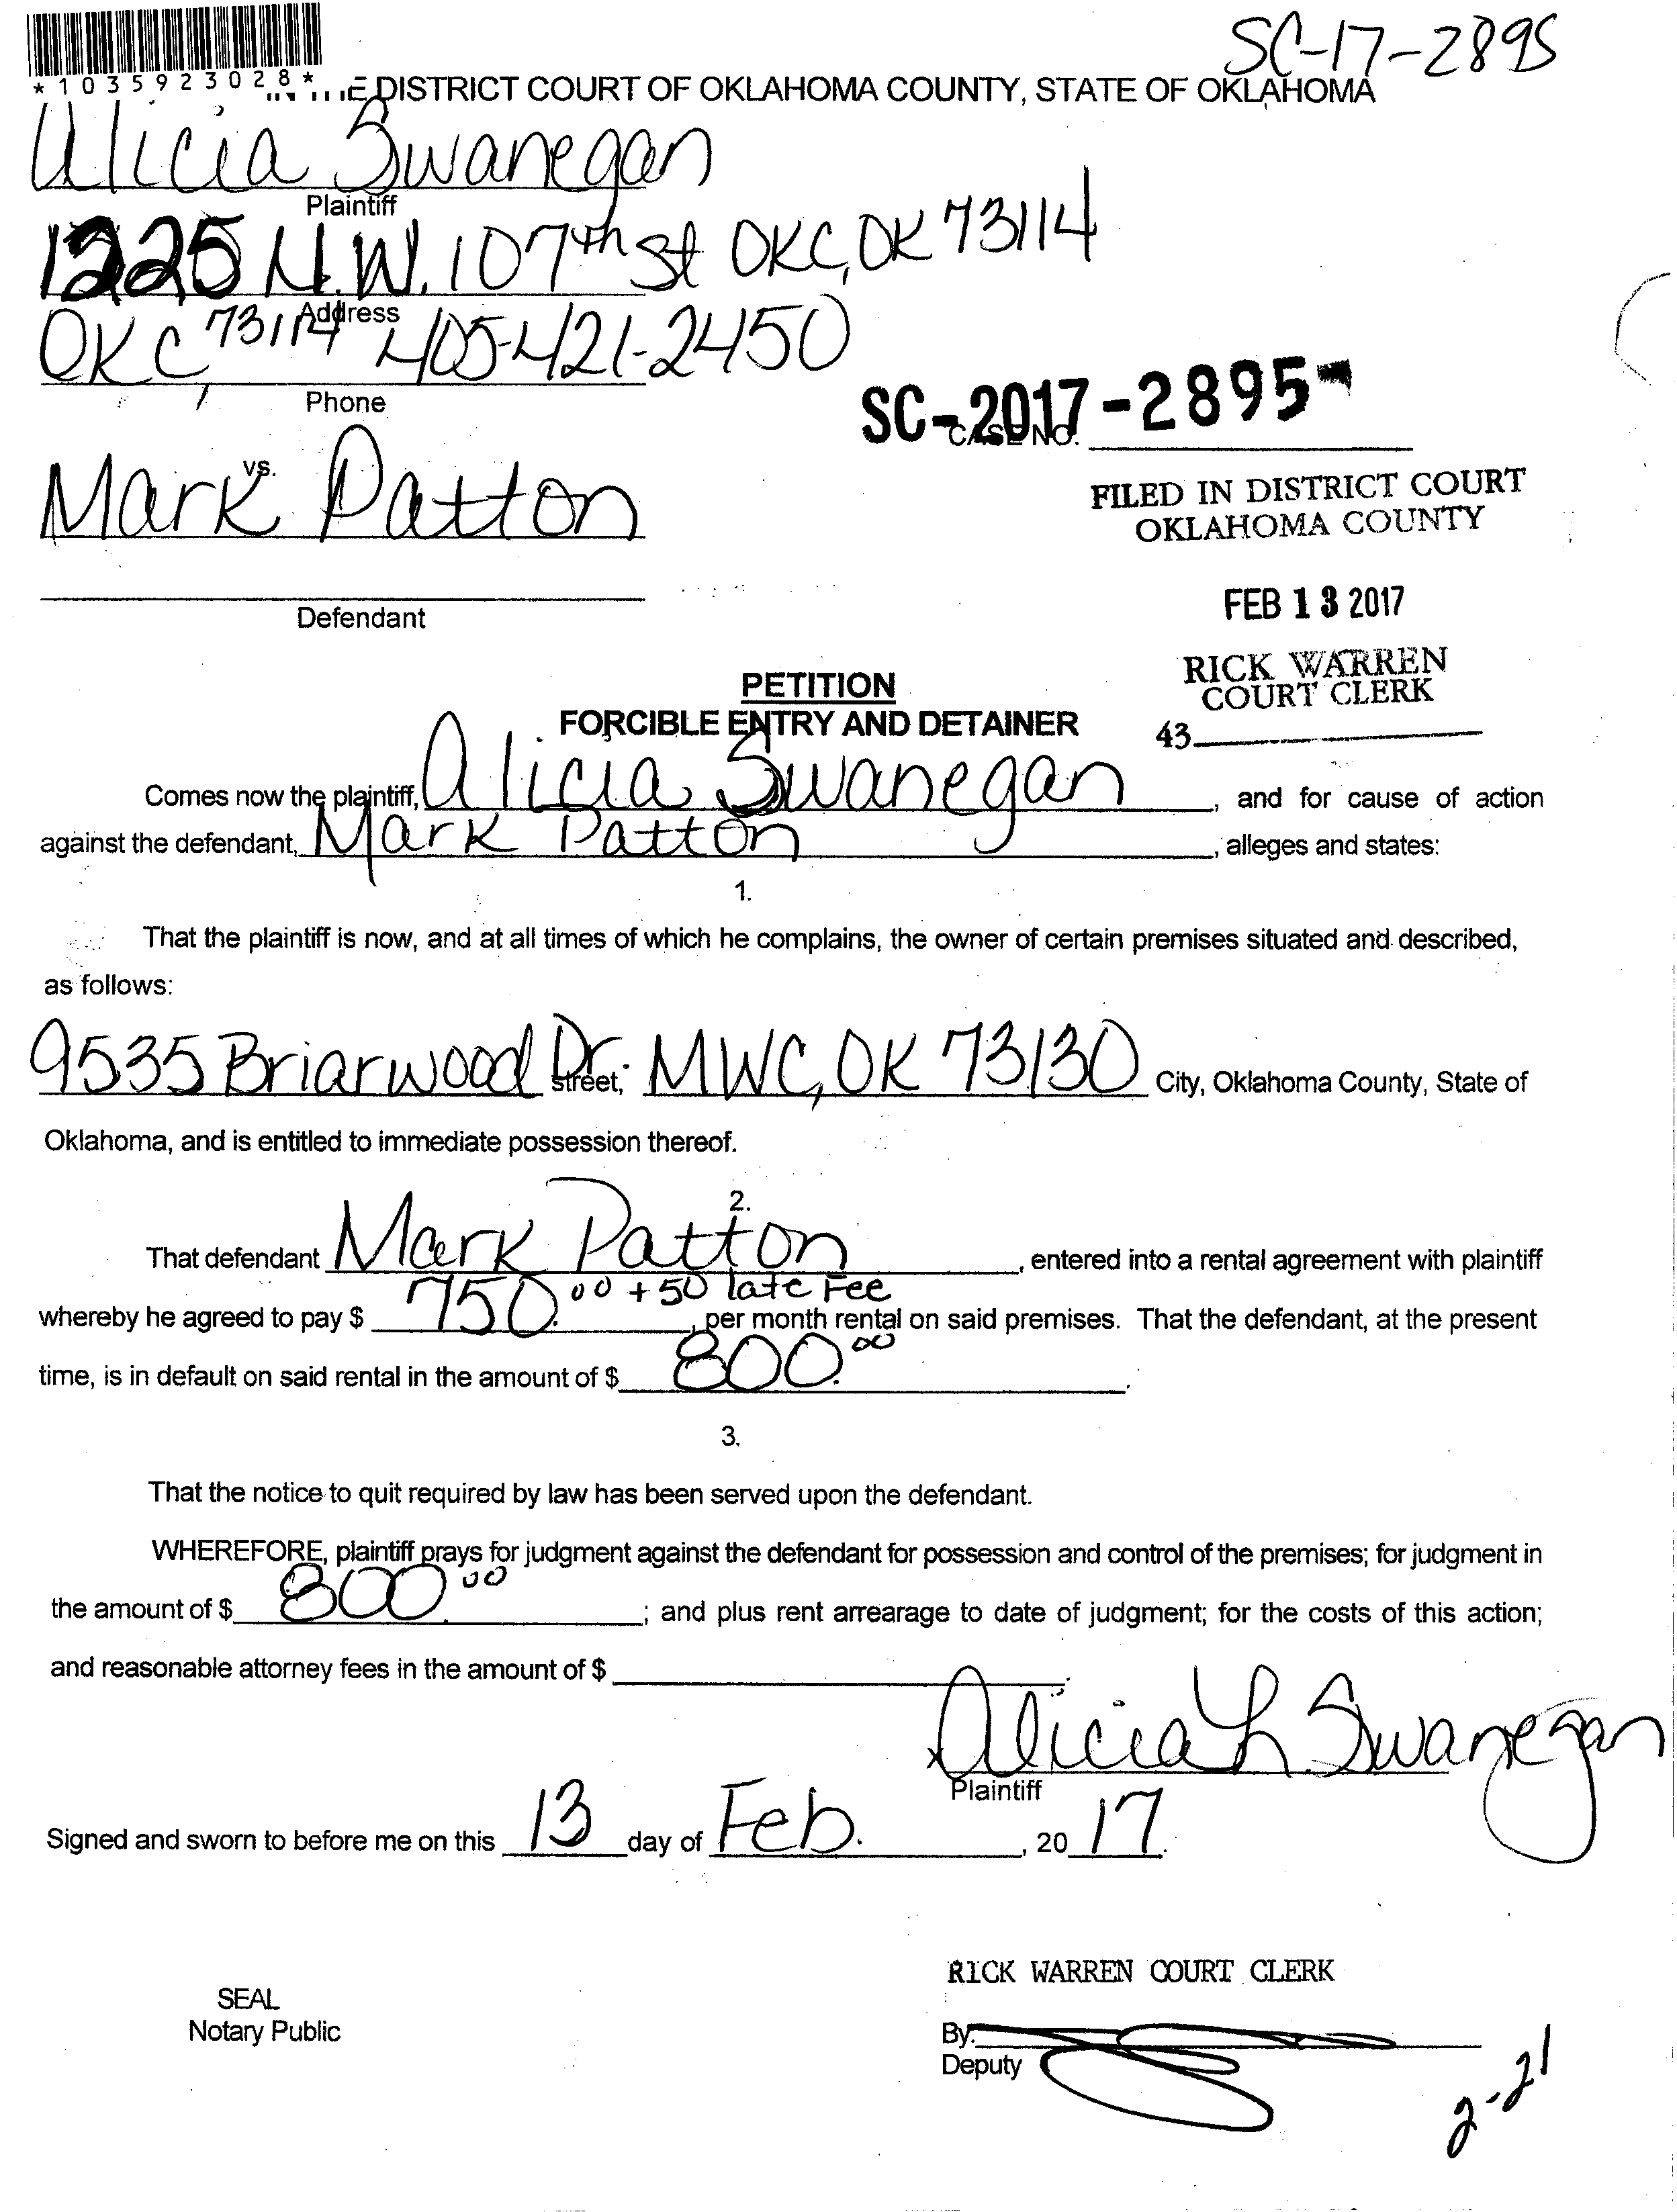 SC-17-2895
*1035923028*
DISTRICT COURT OF OKLAHOMA COUNTY, STATE OF OKLAHOMA
Alicia Swanegan
Plaintiff
1225 N.W. 107th St OKC, OK 73114
Address
OKC, 73114 405-421-2450
Phone
SC-2017-2895
CASE NO.
vs.
Mark Patton
FILED IN DISTRICT COURT
OKLAHOMA COUNTY
Defendant
FEB 13 2017
RICK WARREN
COURT CLERK
43
PETITION
FORCIBLE ENTRY AND DETAINER
Comes now the plaintiff, Alicia Swanegan, and for cause of action
against the defendant, Mark Patton, alleges and states:
1.
That the plaintiff is now, and at all times of which he complains, the owner of certain premises situated and described,
as follows:
9535 Briarwood Dr. Street, MWC, OK 73130 City, Oklahoma County, State of
Oklahoma, and is entitled to immediate possession thereof.
2.
That defendant Mark Patton, entered into a rental agreement with plaintiff
whereby he agreed to pay $ 750.00 + 50 late Fee, per month rental on said premises. That the defendant, at the present
time, is in default on said rental in the amount of $ 800.00.
3.
That the notice to quit required by law has been served upon the defendant.
WHEREFORE, plaintiff prays for judgment against the defendant for possession and control of the premises; for judgment in
the amount of $ 800.00; and plus rent arrearage to date of judgment; for the costs of this action;
and reasonable attorney fees in the amount of $
x Alicia L Swanegan
Plaintiff
Signed and sworn to before me on this 13 day of Feb., 20 17.
RICK WARREN COURT CLERK
SEAL
Notary Public
By:
Deputy
2-21